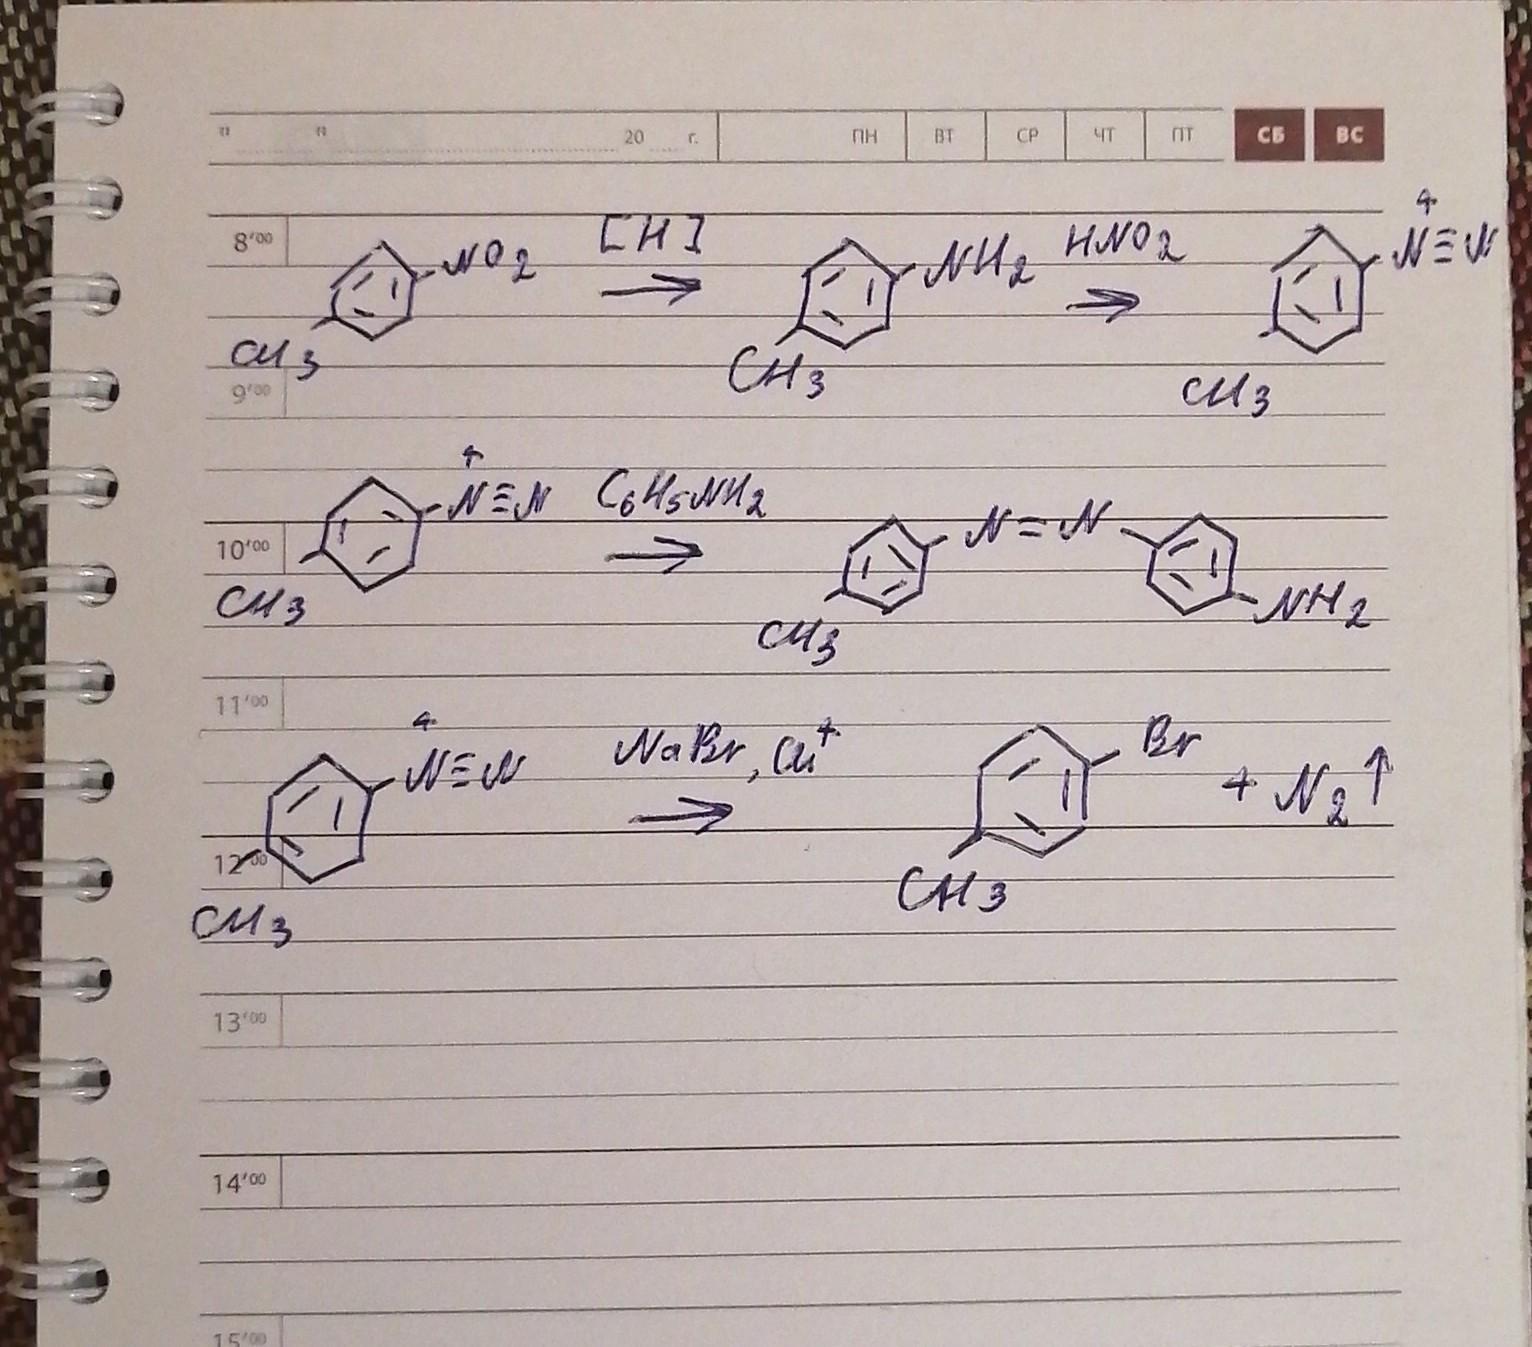 " " 20 г. ПН ВТ СР ЧТ ПТ СБ ВС
8'00
NO2 [H] NH2 HNO2 N+≡N
CH3 CH3 CH3
9'00
N+≡N C6H5NH2 N=N
10'00
CH3 CH3 NH2
11'00
N+≡N NaBr, Cu+ Br + N2↑
12'00
CH3 CH3
13'00
14'00
15'00